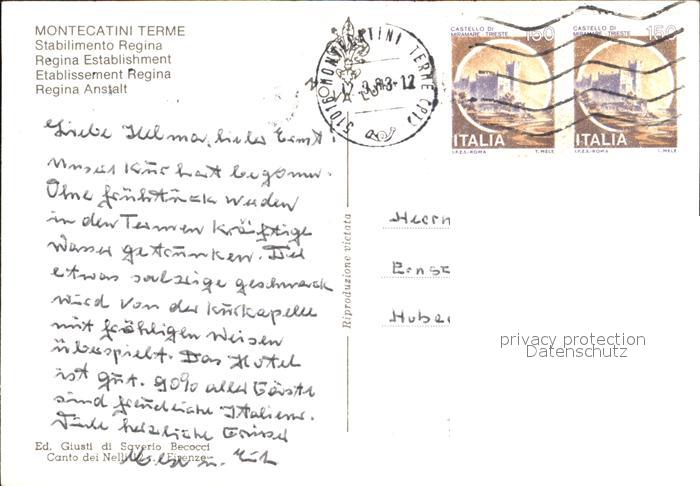 MONTECATINI TERME
Stabilimento Regina
Regina Establishment
Etablissement Regina
Regina Anstalt
CASTELLO DI
MIRAMARE - TRIESTE
150
ITALIA
I.P.Z.S.-ROMA
T. MELE
CASTELLO DI
MIRAMARE - TRIESTE
150
ITALIA
I.P.Z.S.-ROMA
T. MELE
51016 MONTECATINI TERME (PT)
Liebe Helma, lieber Ernst!
Unser Kur hat begonnen.
Ohne Frühstück werden
in den Termen kräftige
Wasser getrunken. Der
etwas salzige geschmack
wird von der Kurkapelle
mit fröhligen Weisen
überspielt. Das Hotel
ist gut. 90% aller Gäste
sind freundliche Italiener.
Viele herzliche Grüsse
Riproduzione vietata
Herrn
Ernst
Huber
privacy protection
Datenschutz
Ed. Giusti di Saverio Becocci
Canto dei Nelli Firenze